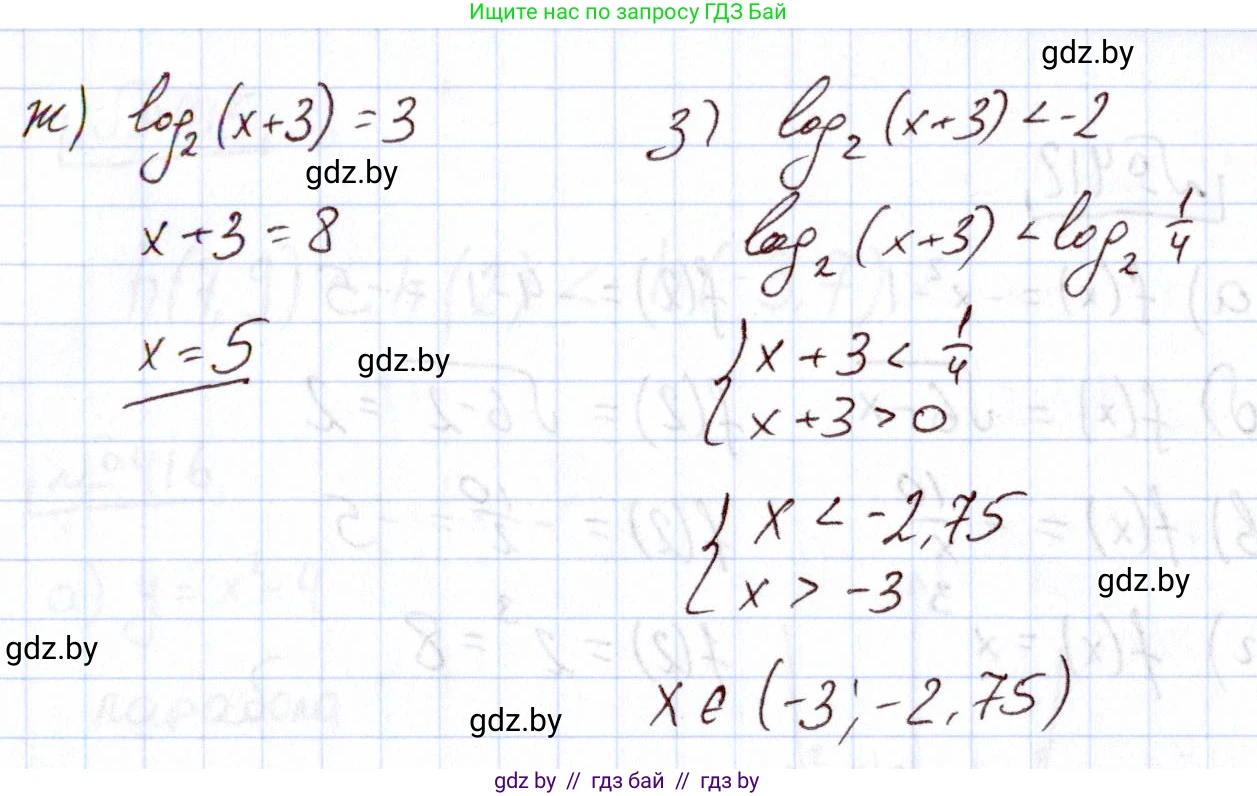 Ищите нас по запросу ГДЗ Бай
gdz.by
ж) log₂(x+3) = 3
gdz.by
x + 3 = 8
x = 5
gdz.by
з) log₂(x+3) < -2
log₂(x+3) < log₂ 1/4
{ x + 3 < 1/4
x + 3 > 0
{ x < -2,75
x > -3
gdz.by
gdz.by
x ∈ (-3; -2,75)
gdz.by
gdz.by // гдз бай // гдз by